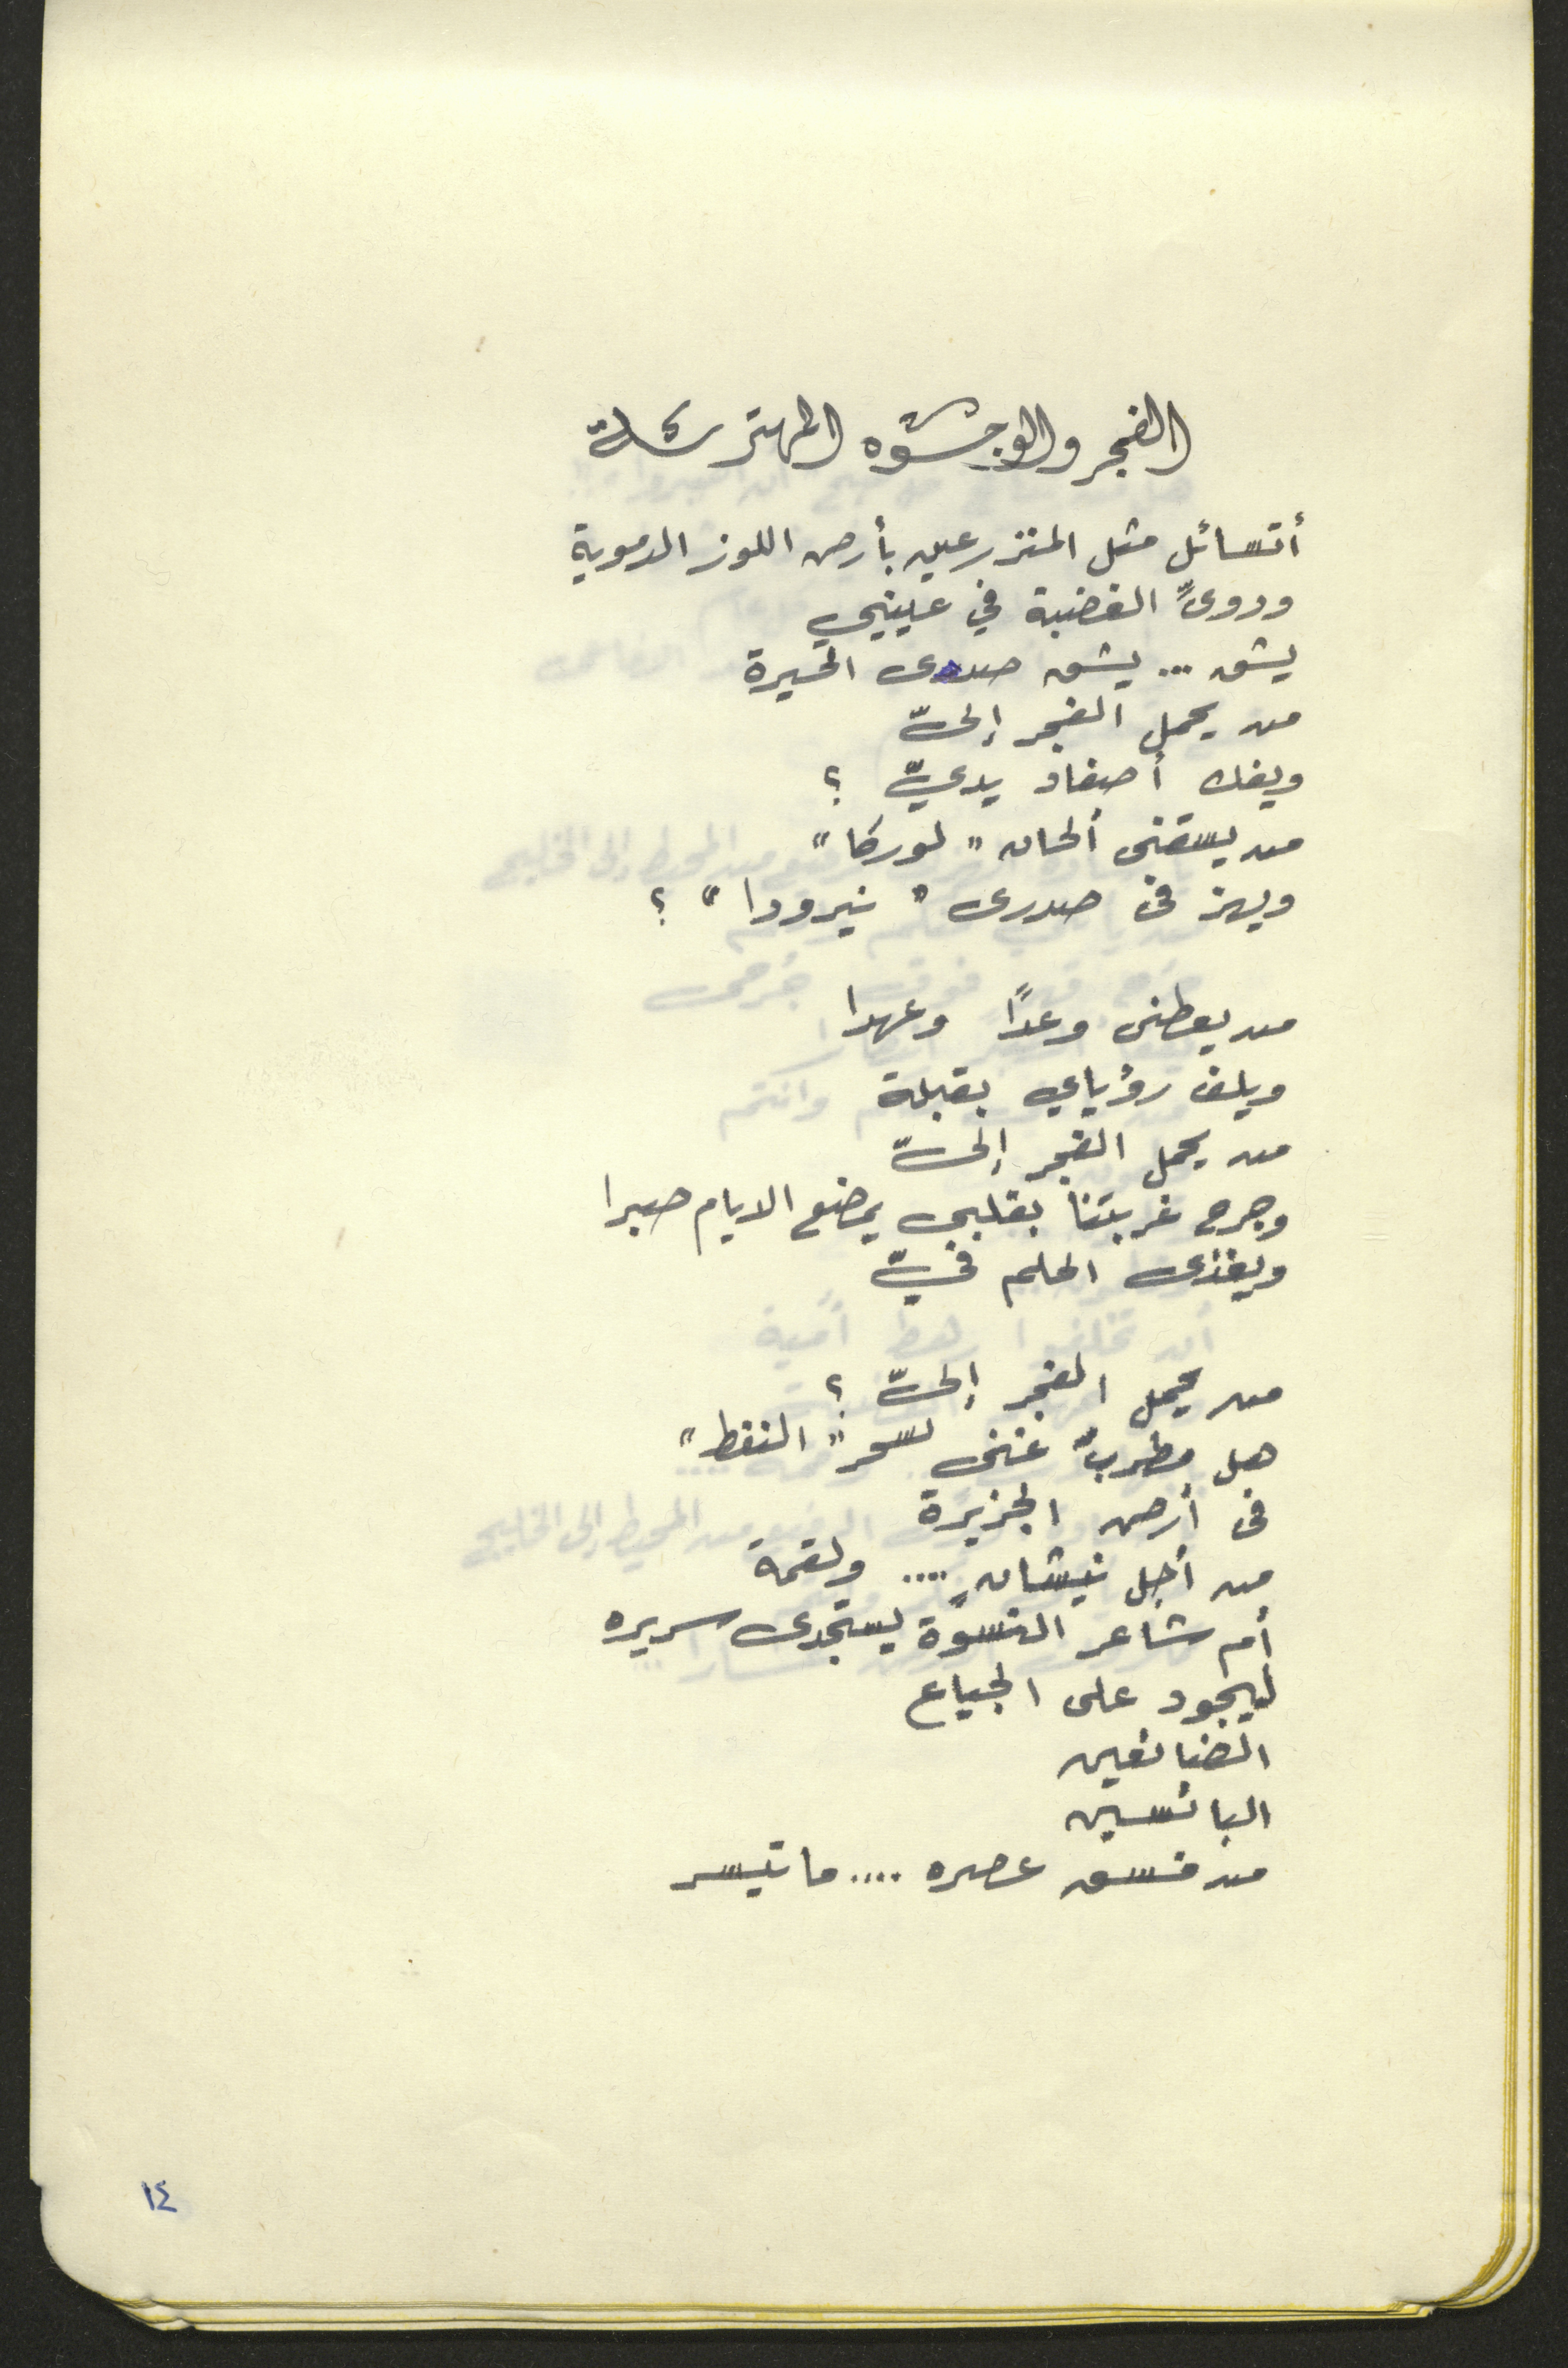 الفجر والوجوه المهترئة
أتسائل مثل المنزرعين بأرض اللوز الدموية
ودوىّ الغضبة في عينيي
يشق ... يشق صدى الحيرة
من يحمل الفجر إلىّ
ويفك أصفاد يديّ ؟
من يسقنى ألحان "لوركا"
ويهز فى صدرى "نيرودا" ؟
من يعطنى وعدًا وعهدا
ويلف رؤياي بقبلة
من يحمل الفجر إلىّ
وجرح غربتنا بقلبي يمضغ الايام صبرا
ويغذى الحلم فيّ
من يحمل الفجر إلىّ ؟
هل مطربٌ غنى لسحر "النفط"
فى أرض الجزيرة
من أجل نيشانٍ .... ولقمة
أم شاعر النسوة يستجدى سريره
ليجود على الجياع
الضائعين
البائسين
من فسق عصره .... ما تيسر
١٤